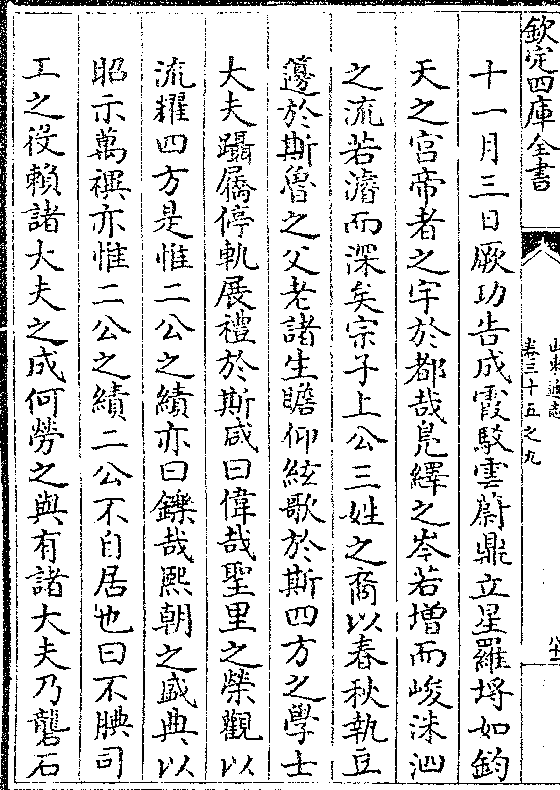 欽定四庫全書
卷三十五之九
十一月三日厥功告成霞駁雲蔚鼎立星羅埒如鈞
天之宮帝者之宇於都哉鳬繹之岑若增而峻洙泗
之流若濬而深矣宗子上公三姓之裔以春秋執豆
籩於斯魯之父老諸生瞻仰絃歌於斯四方之學士
大夫躡屩停軌展禮於斯咸曰偉哉聖里之榮觀以
流耀四方是惟二公之績亦曰鑠哉熙朝之盛典以
昭示萬禩亦惟二公之績二公不自居也曰不腆司
工之役賴諸大夫之成何勞之與有諸大夫乃礱石